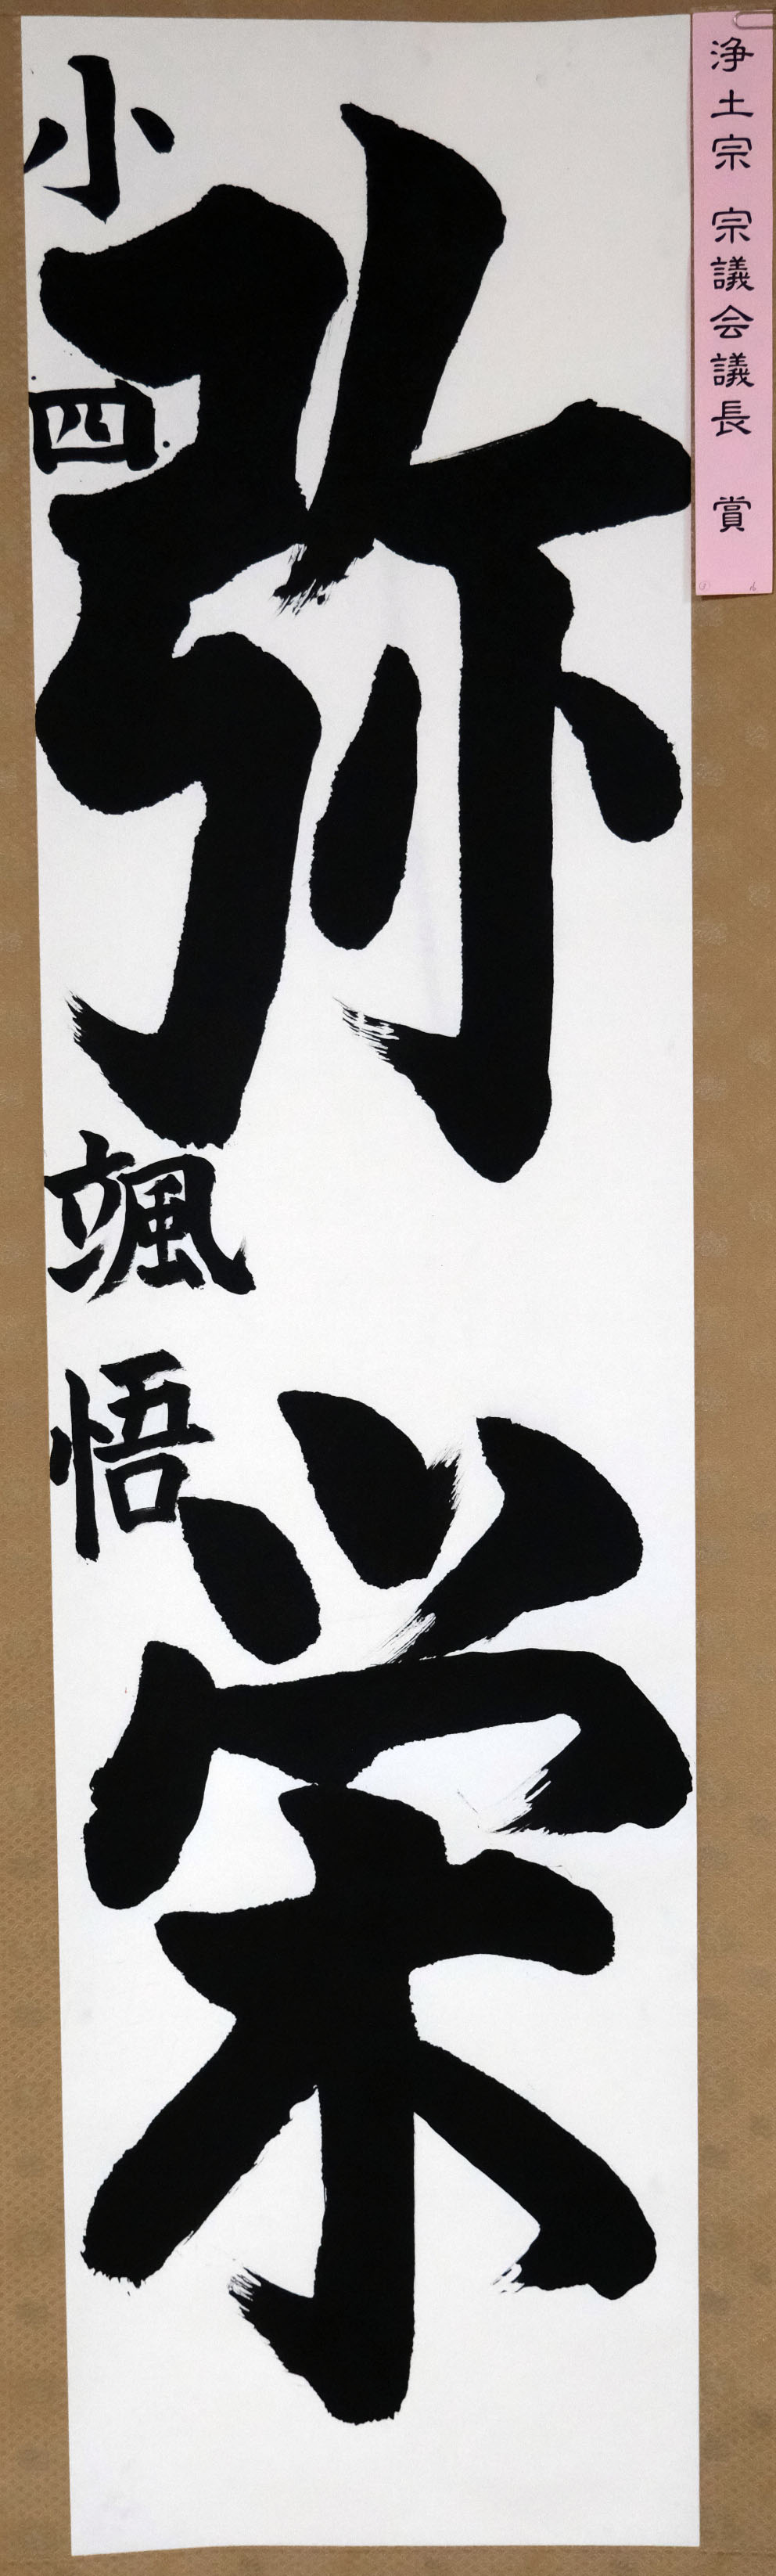 浄土宗 宗議会議長 賞
弥栄
小四 颯悟